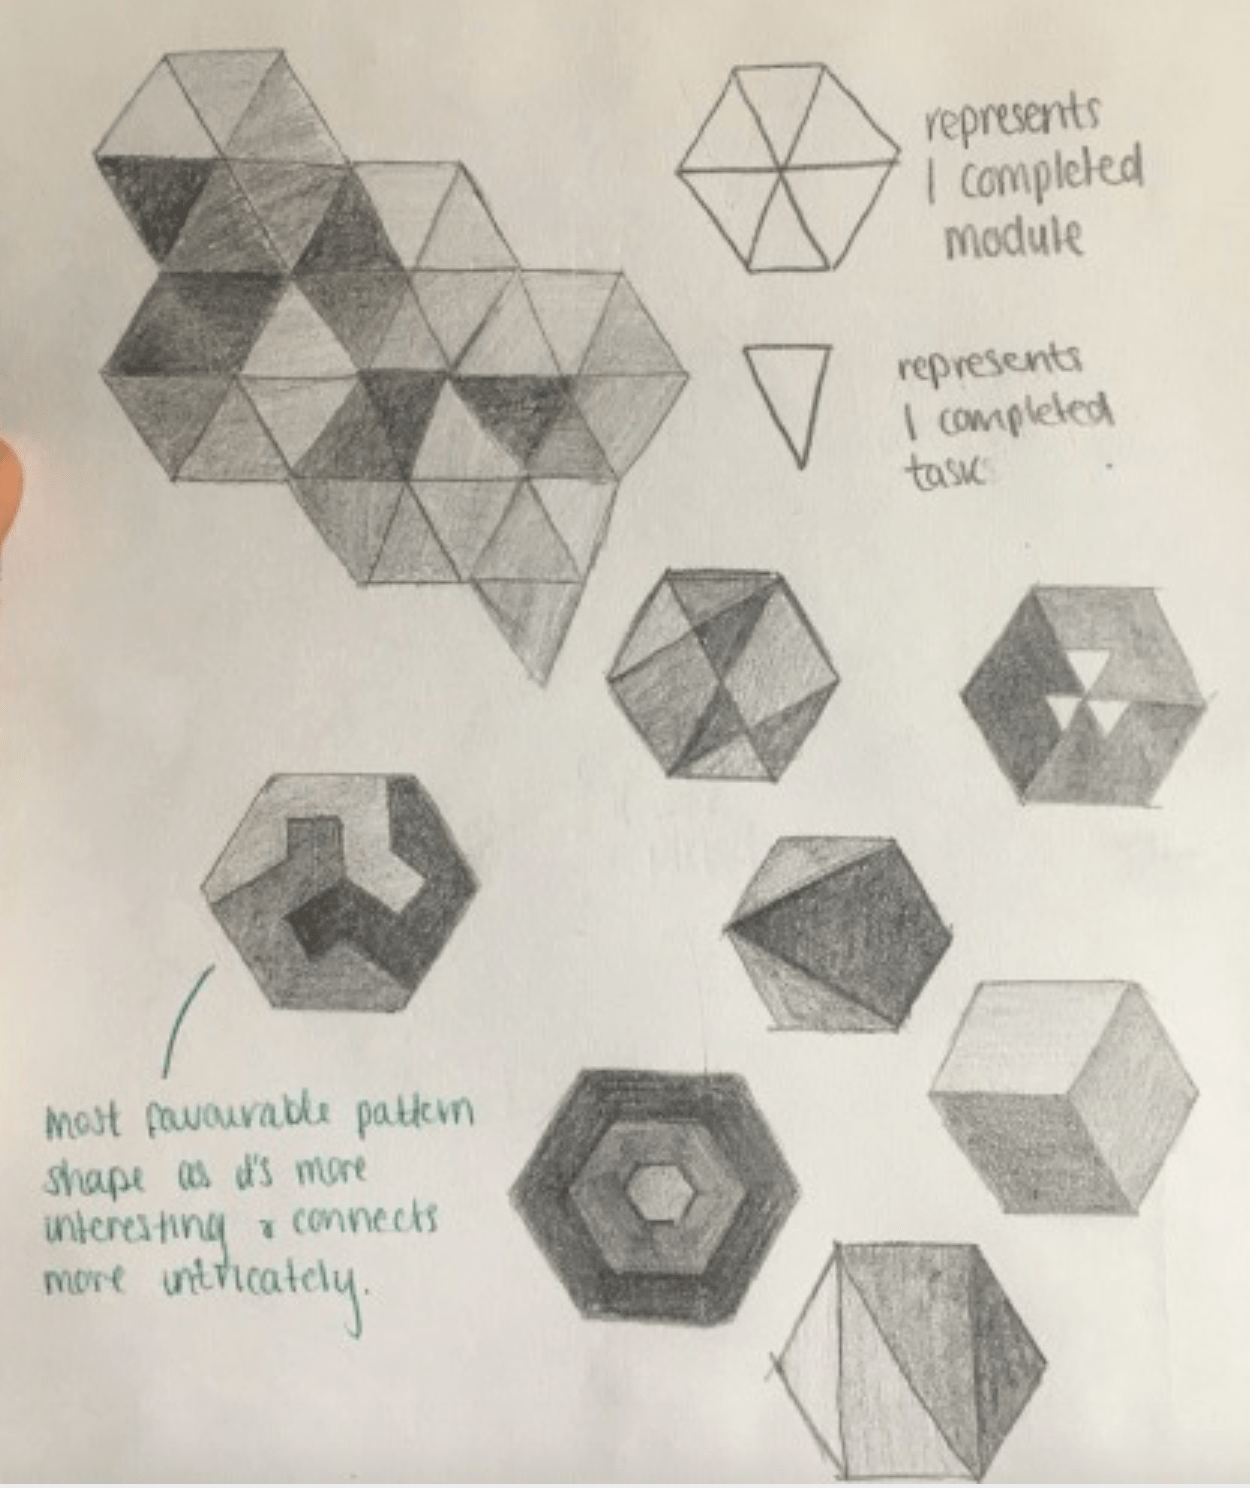 represents
1 completed
module
represents
1 completed
task
most favourable pattern
shape as it's more
interesting & connects
more intricately.